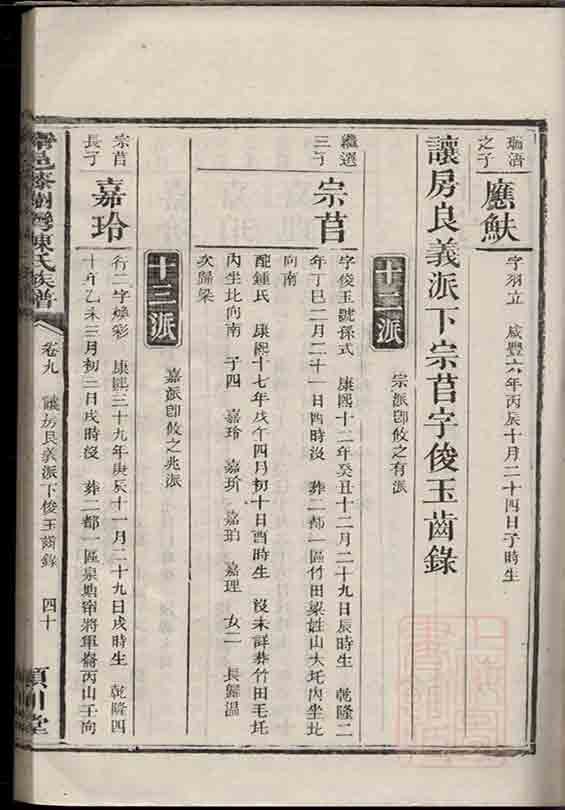 瑞濟之子
應鈇
字羽立 咸豐六年丙辰十月二十四日子時生
讓房良義派下宗苢字俊玉齒錄
十二派
宗派卽攸之有派
繼選三子
宗苢
字俊玉號孫式 康熙十二年癸丑十二月二十九日辰時生 乾隆二
年丁巳二月二十一日酉時沒 葬二都一區竹田梁姓山大圫內坐北
向南
配鍾氏 康熙十七年戊午四月初十日酉時生 沒未詳葬竹田毛圫
內坐北向南 子四 嘉玲 嘉玠 嘉珀 嘉理 女二 長歸温
次歸梁
十三派
嘉派卽攸之兆派
宗苢長子
嘉玲
行二字煥彩 康熙三十九年庚辰十一月二十九日戌時生 乾隆四
十年乙未三月初二日戌時沒 葬二都一區泉塘窂將軍崙丙山壬向
寧邑漆樹灣陳氏族譜
卷九 讓房良義派下俊玉齒錄 四十
潁川堂